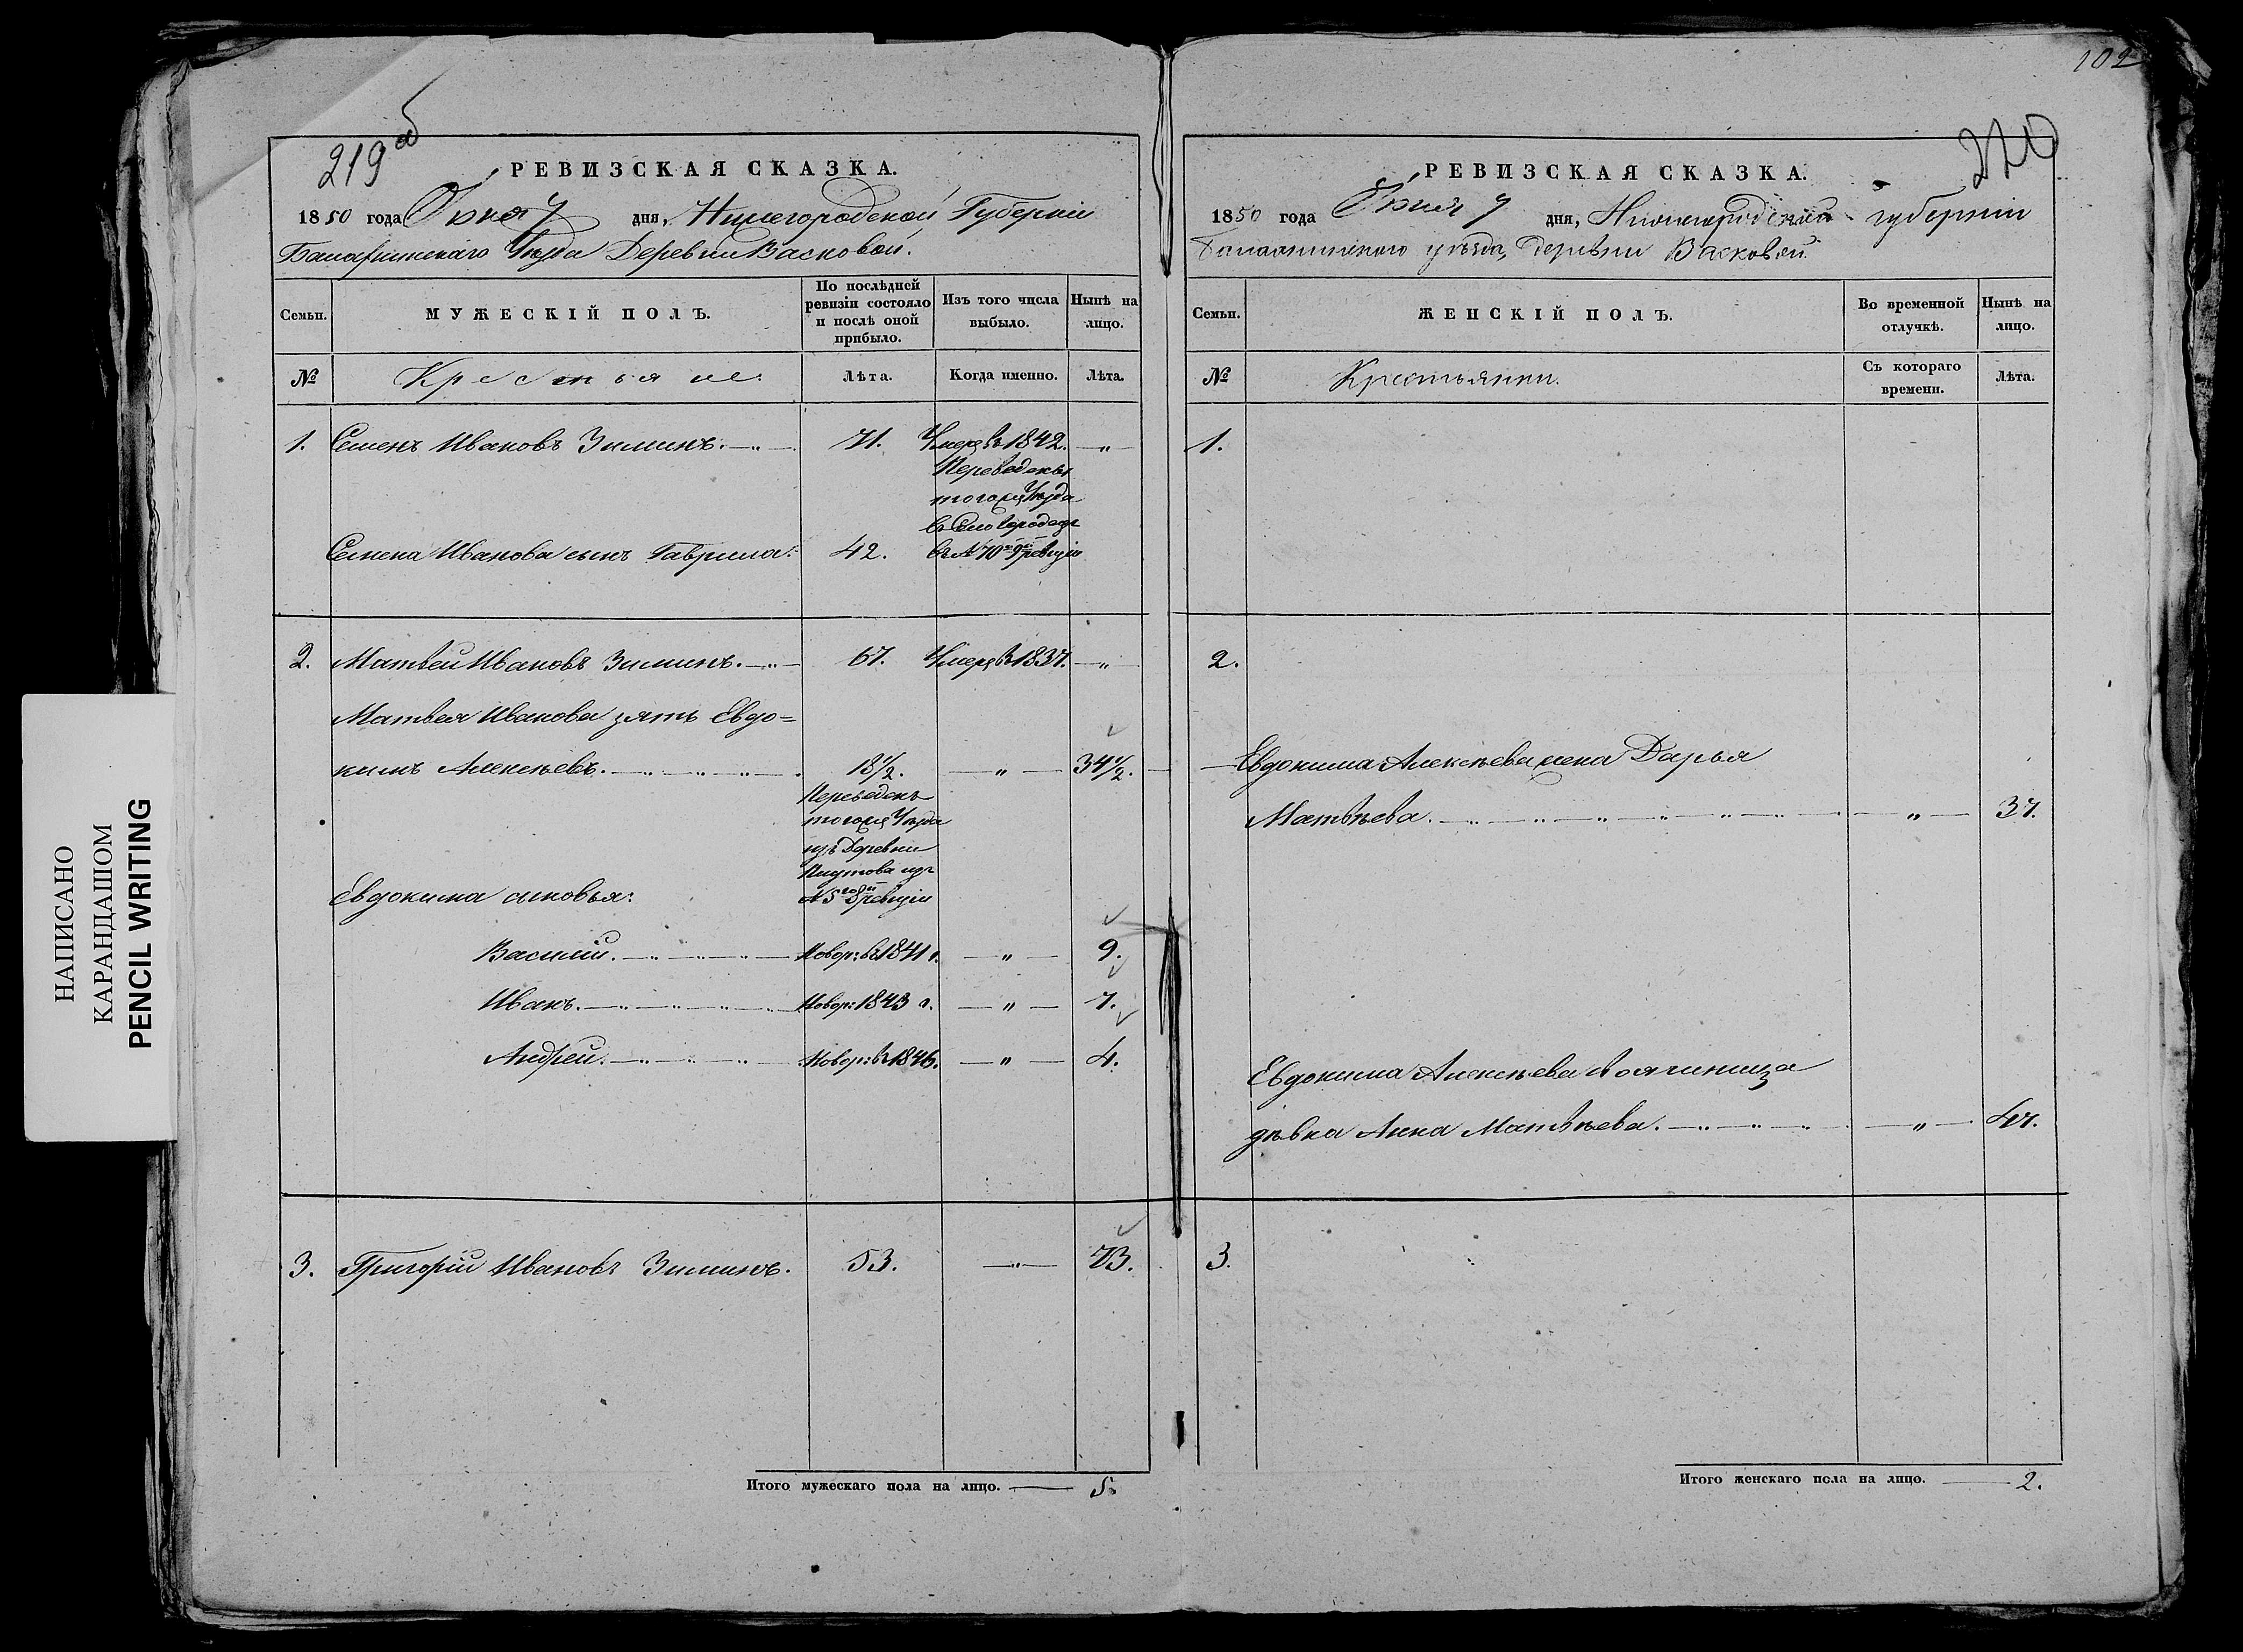 102
219 об
РЕВИЗСКАЯ СКАЗКА.
1850 года Іюня 7 дня, Нижегородской Губерніи
Балахнинскаго Уѣзда Деревни Васковой.
Семьи.
МУЖЕСКІЙ ПОЛЪ.
По послѣдней ревизіи состояло и послѣ оной прибыло.
Изъ того числа выбыло.
Нынѣ на лицо.
№
Крестьяне.
Лѣта.
Когда именно.
Лѣта.
1. Семенъ Ивановъ Зиминъ. 71. Умеръ въ 1842. „
Переведенъ
тогожъ Уѣзда
въ Село Городецъ
Семена Иванова сынъ Гаврила. 42. въ № 70й 9й ревизіи
2. Матвей Ивановъ Зиминъ. 67. Умеръ въ 1837. „
Матвея Иванова зять Евдо=
кимъ Алексѣевъ. 18½. „ 34½.
Переведенъ
тогожъ Уѣзда
изъ Деревни
изъ
Евдокима сыновья: № 5го 8й ревизіи
Василій. Новор: въ 1841 г. „ 9.
Иванъ. Новор: 1843 г. „ 7.
Андрей. Новор: въ 1846. „ 4.
3. Григорій Ивановъ Зиминъ. 53. „ 73.
Итого мужескаго пола на лицо. 5.
220
РЕВИЗСКАЯ СКАЗКА.
1850 года Іюня 7 дня, Нижегородской губерніи
Балахнинскаго уѣзда, деревни Васковой.
Семьи.
ЖЕНСКІЙ ПОЛЪ.
Во временной отлучкѣ.
Нынѣ на лицо.
№
Крестьянки.
Съ котораго времени.
Лѣта.
1.
2.
Евдокима Алексѣева жена Дарья
Матвѣева. „ 37.
Евдокима Алексѣева своячиница
дѣвка Анна Матвѣева. „ 47.
3.
Итого женскаго пола на лицо. 2.
НАПИСАНО
КАРАНДАШОМ
PENCIL WRITING